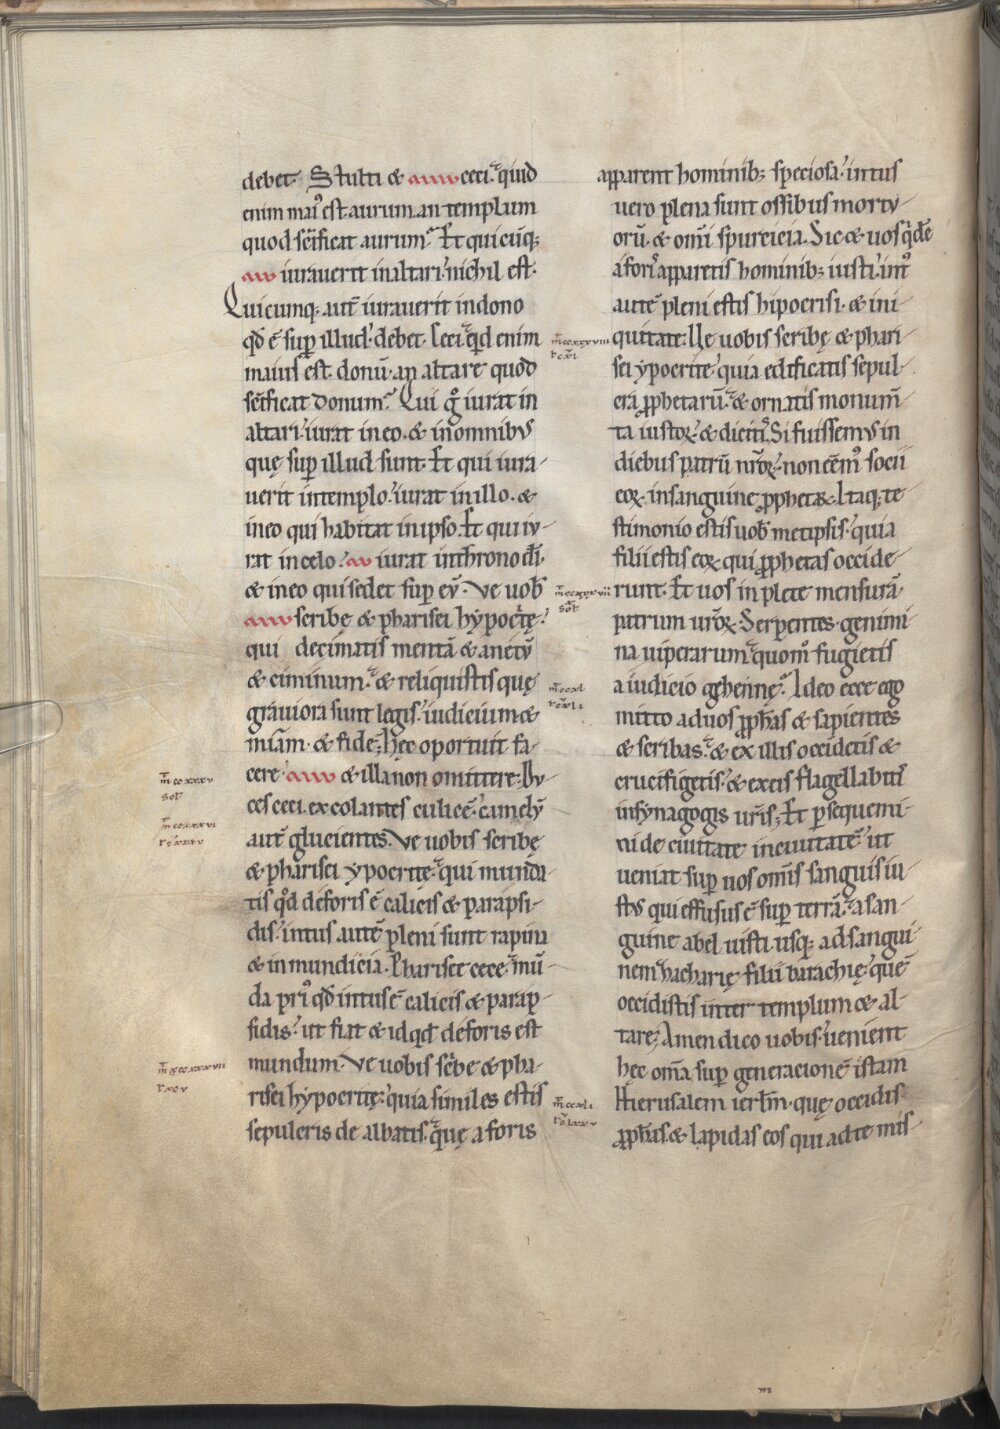 debet. Stulti & ceci. quid
enim mai᷒ est. aurum. an templum
quod sc̄ificat aurum? Et quicūq;
iurauerit in altari. nichil est.
Quicumq; aut̄ iurauerit in dono
qd̄ ē sup illud. debet. Ceci. qid enim
maius est. donū. an altare quod
sc̄ificat donum? Qui g̊ iurat in
altari. iurat in eo. & in omnibus
quę sup illud sunt. Et qui iura-
uerit in templo. iurat in illo. &
in eo qui habitat in ipso. Et qui iu-
rat in celo. iurat in throno dī.
& in eo qui sedet sup eū. Ve uob
scribę & pharisei hypocitę.
qui decimatis mentā & anetū
& ciminum. & reliquistis quę
grauiora sunt legis. iudicium &
miam̄. & fidē; hęc oportuit fa-
cere. & illa non omittere. Du-
ces ceci. excolantes culicē. camelū
aut̄ glucientes. Ve uobis scribę
& pharisei ypocritę. qui munda-
tis qd̄ deforis ē calicis & parapsi-
dis. intus autē pleni sunt rapina
& inmundicia. Pharisee cece. mū-
da pri᷒ qd̄ intus ē calicis & parap-
sidis. ut fiat & id qd̄ deforis est
mundum. Ve uobis scibe & pha-
risei hypocritę. quia similes estis
sepulcris dealbatis. quę a foris
apparent hominib; speciosa. intus
uero plena sunt ossibus mortu-
orū. & omī spurcicia. Sic & uos qidē
a foris apparetis hominib; iusti. int᷒
autē pleni estis hipocrisi. & ini-
quitate. Ve uobis scribę & phari-
sei ypocritę. quia edificatis sepul-
cra pphetarū. & ornatis monum̄-
ta iustoꝝ. & dicitis. Si fuissemus in
diebus patrū nr̄oꝝ. non eēm᷒ socii
eoꝝ in sanguine pphetaꝝ. Itaq; te-
stimonio estis uob metipsis. quia
filii estis eoꝝ qui pphetas occide-
runt. Et uos inplete mensurā
patrum ur̄oꝝ. Serpentes. genimi-
na uiperarum. quom̊ fugietis
a iudicio gehennę? Ideo ecce ego
mitto ad uos pphas & sapientes
& scribas. & ex illis occidetis &
crucifigetis. & ex eis flagellabitis
in synagogis ur̄is; Et psequemi-
ni de ciuitate in ciuitatē. ut
ueniat sup uos omīs sanguis iu-
stus qui effusus ē sup terrā. a san-
guine abel iusti. usq; ad sangui-
nem zacharię filii barachię. quē
occidistis inter templum & al-
tare; Amen dico uobis. uenient
hęc om̄a sup generacionē istam
Hierusalem ierlm̄. quę occidis
pphas. & lapidas eos qui ad te mis-
m